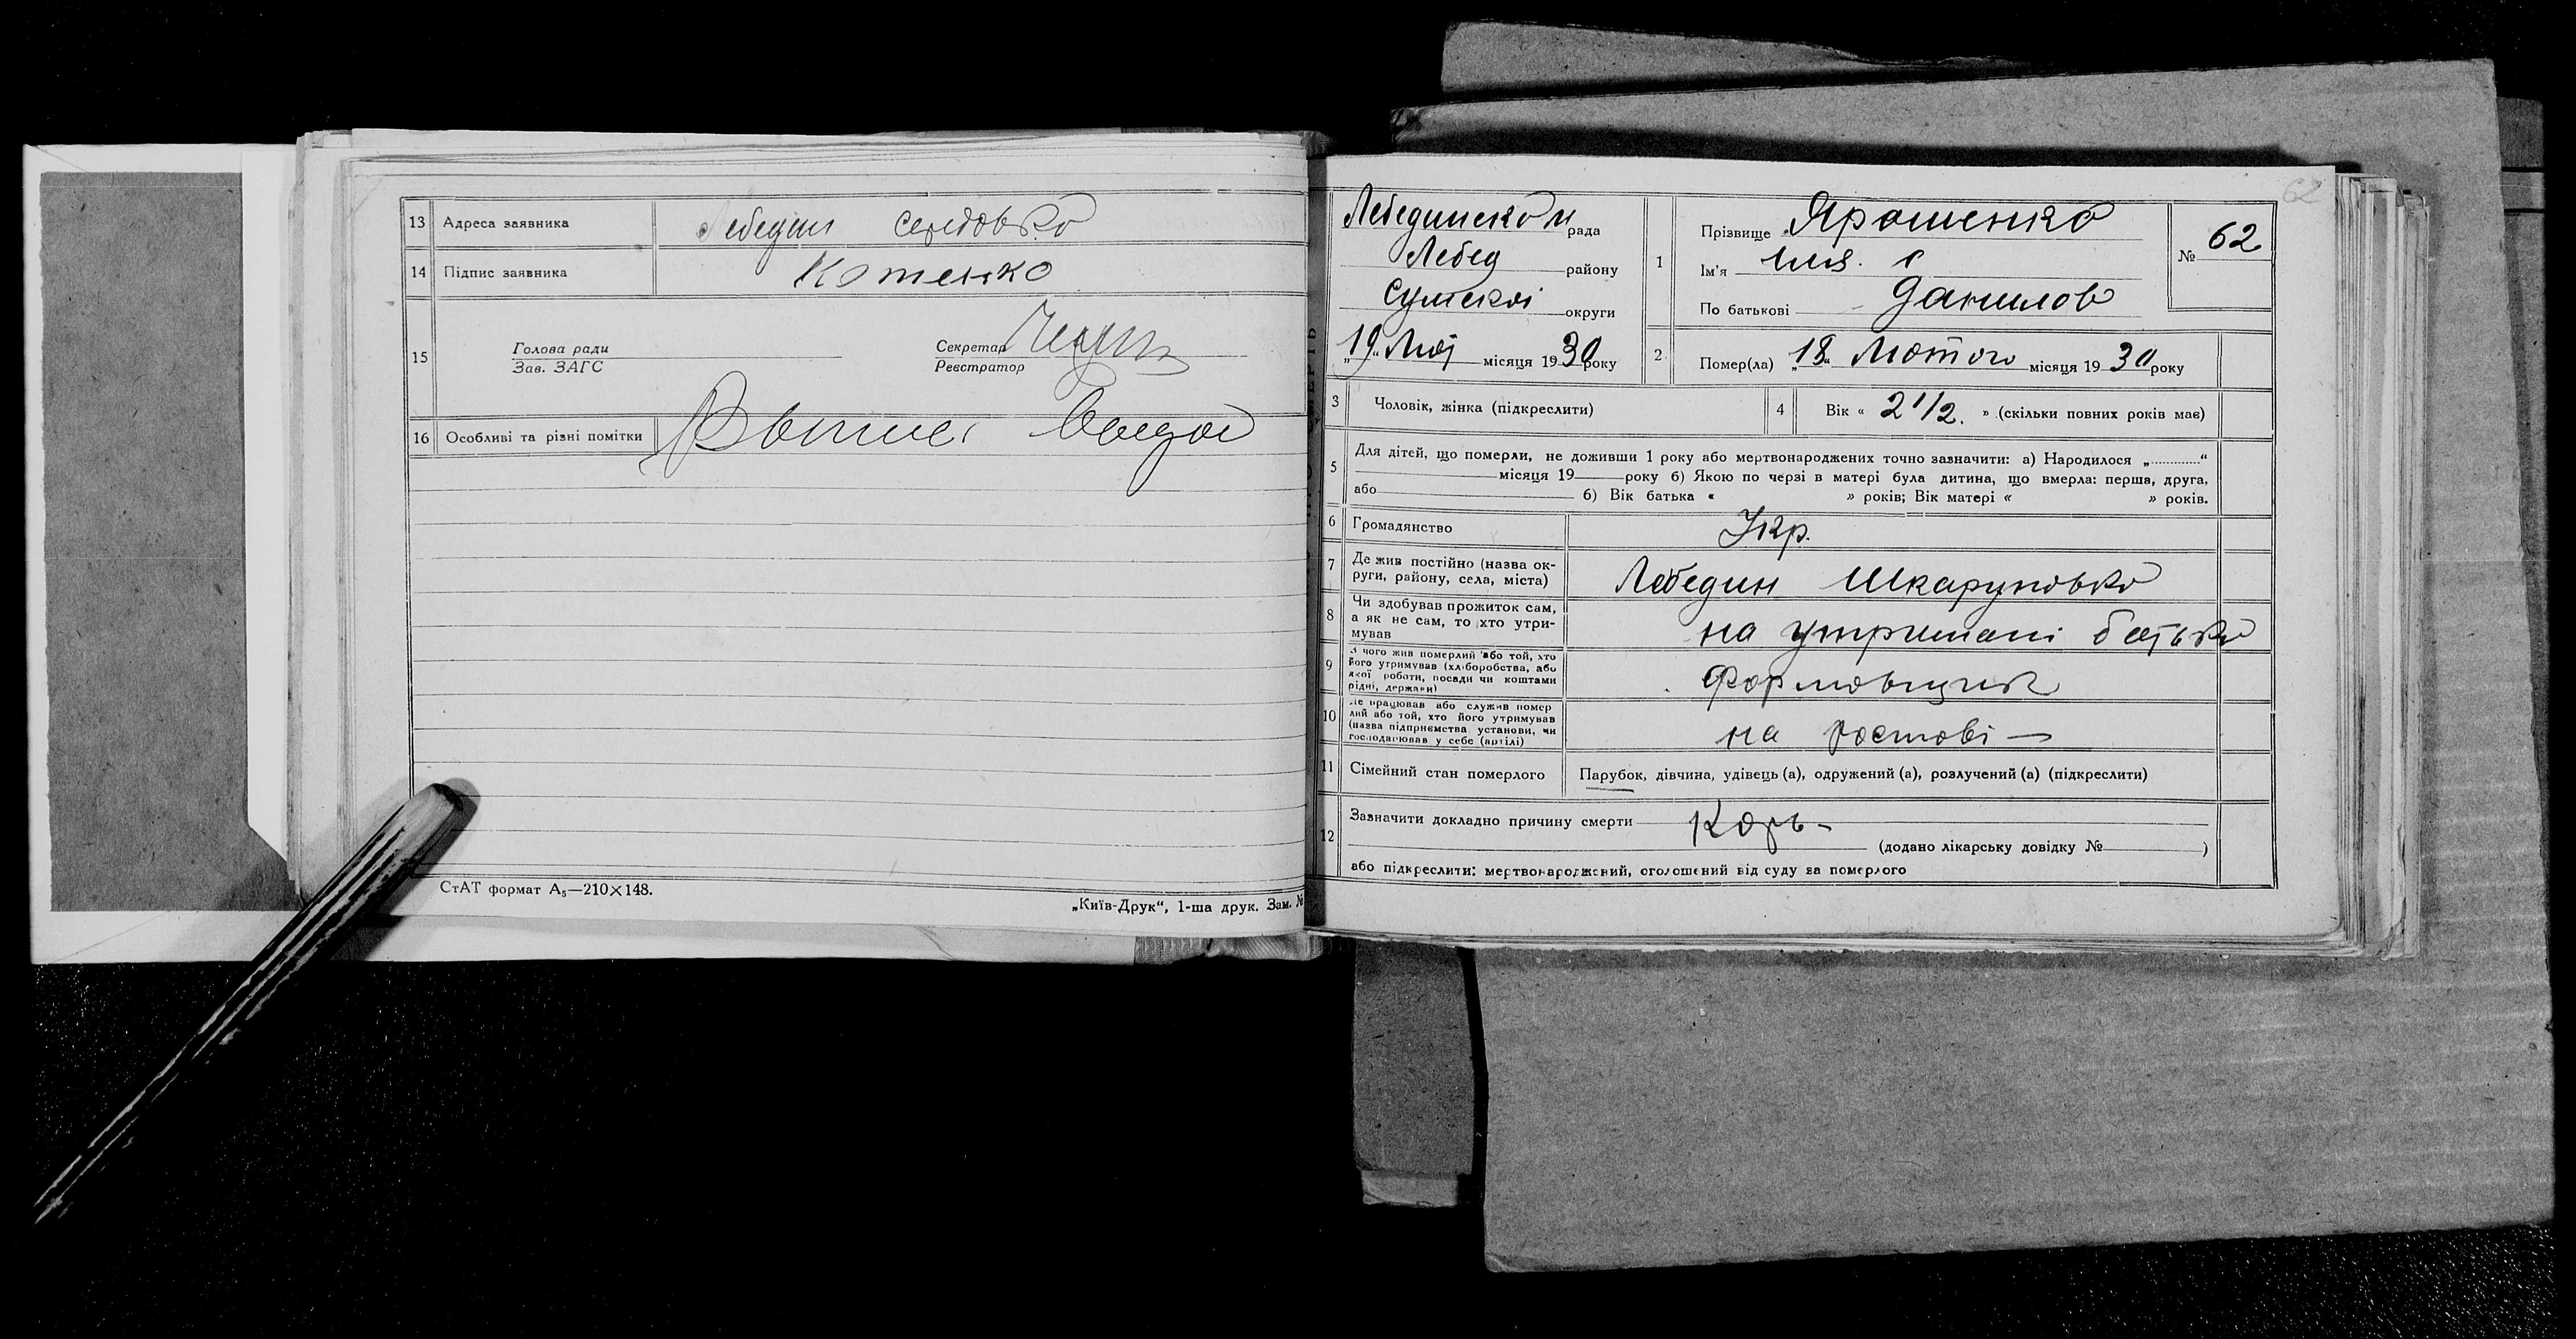 13 Адреса заявника Лебедин
14 Підпис заявника Котенко
15 Голова ради
Зав. ЗАГС
Секретар
Реєстратор
16 Особливі та різні помітки
СтАТ формат А₅—210×148.
„Київ-Друк“, 1-ша друк. Зам. №
62
рада
Лебед району
Сумскоі округи
„19“ Лют місяця 1930 року
1 Прізвище Ярошенко
Ім'я
По батькові Данилов
№ 62
2 Помер(ла) „18“ Лютого місяця 1930 року
3 Чоловік, жінка (підкреслити)
4 Вік « 2 1/2. » (скільки повних років має)
5 Для дітей, що померли, не доживши 1 року або мертвонароджених точно зазначити: а) Народилося „............“
місяця 19 року б) Якою по черзі в матері була дитина, що вмерла: перша, друга,
або б) Вік батька « » років; Вік матері « » років.
6 Громадянство Укр.
7 Де жив постійно (назва ок-
руги, району, села, міста) Лебедин
8 Чи здобував прожиток сам,
а як не сам, то хто утри-
мував на утримані батька
9 З чого жив померлий або той, хто
його утримував (хліборобства, або
якої роботи, посади чи коштами
рідні, держави) Формовщик
10 Де працював або служив помер
лий або той, хто його утримував
(назва підприємства установи, чи
господарював у себе (артілі) на
11 Сімейний стан померлого Парубок, дівчина, удівець (а), одружений (а), розлучений (а) (підкреслити)
12 Зазначити докладно причину смерти Корь
(додано лікарську довідку № )
або підкреслити: мертвонароджений, оголошений від суду за померлого